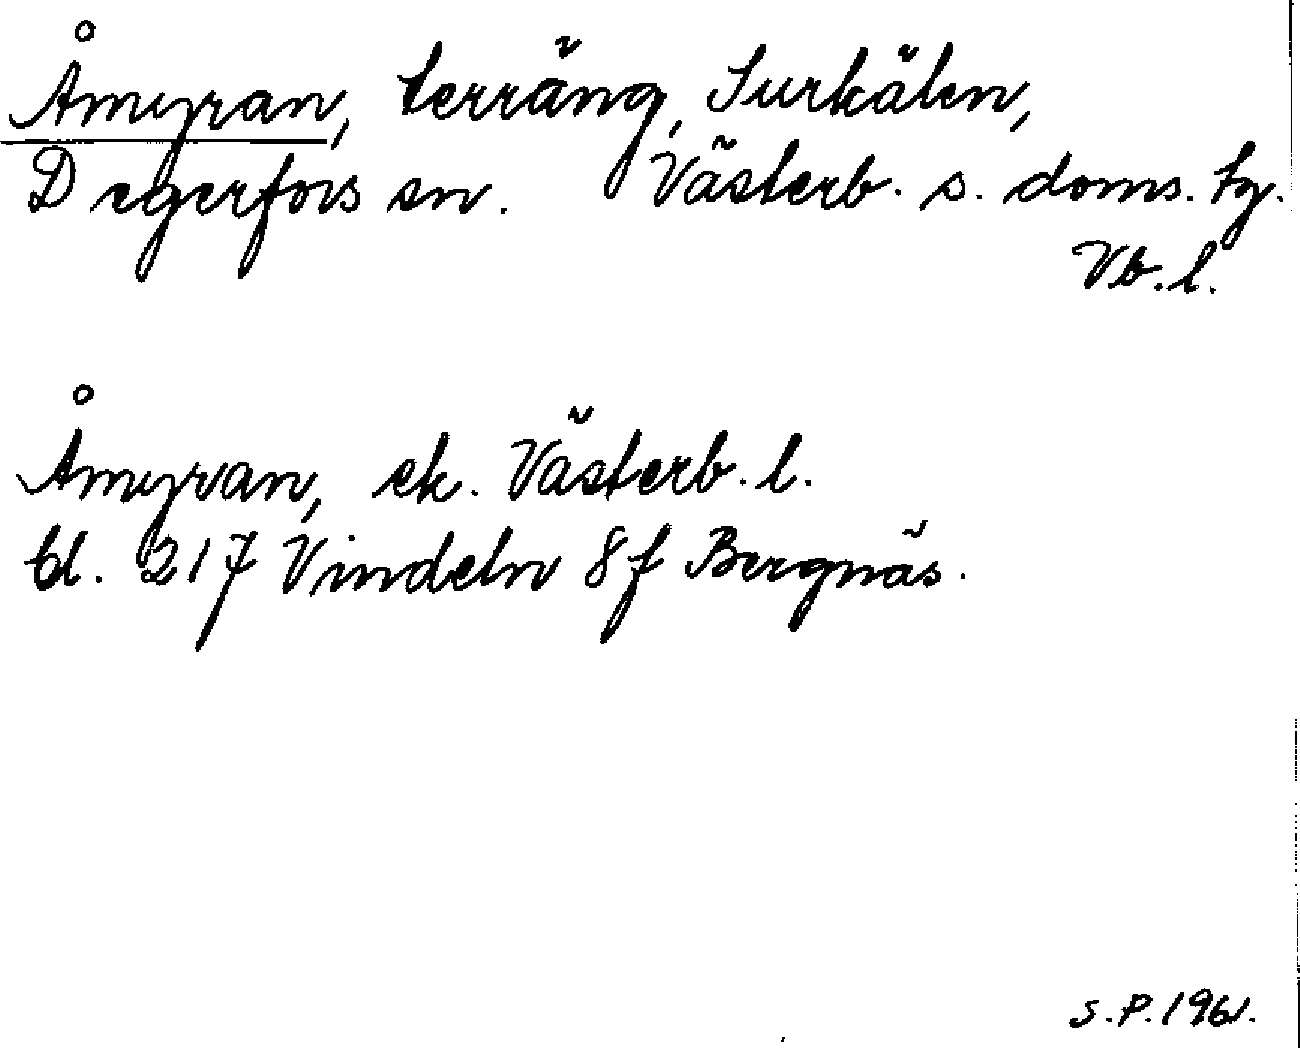 Åmyran, terräng, Surkälen,
Degerfors sn. Västerb. s. doms. tg.
Vb. l.
Åmyran, ek. Västerb. l.
bl. 217 Vindeln 8f Bergnäs.
S.P. 1961.